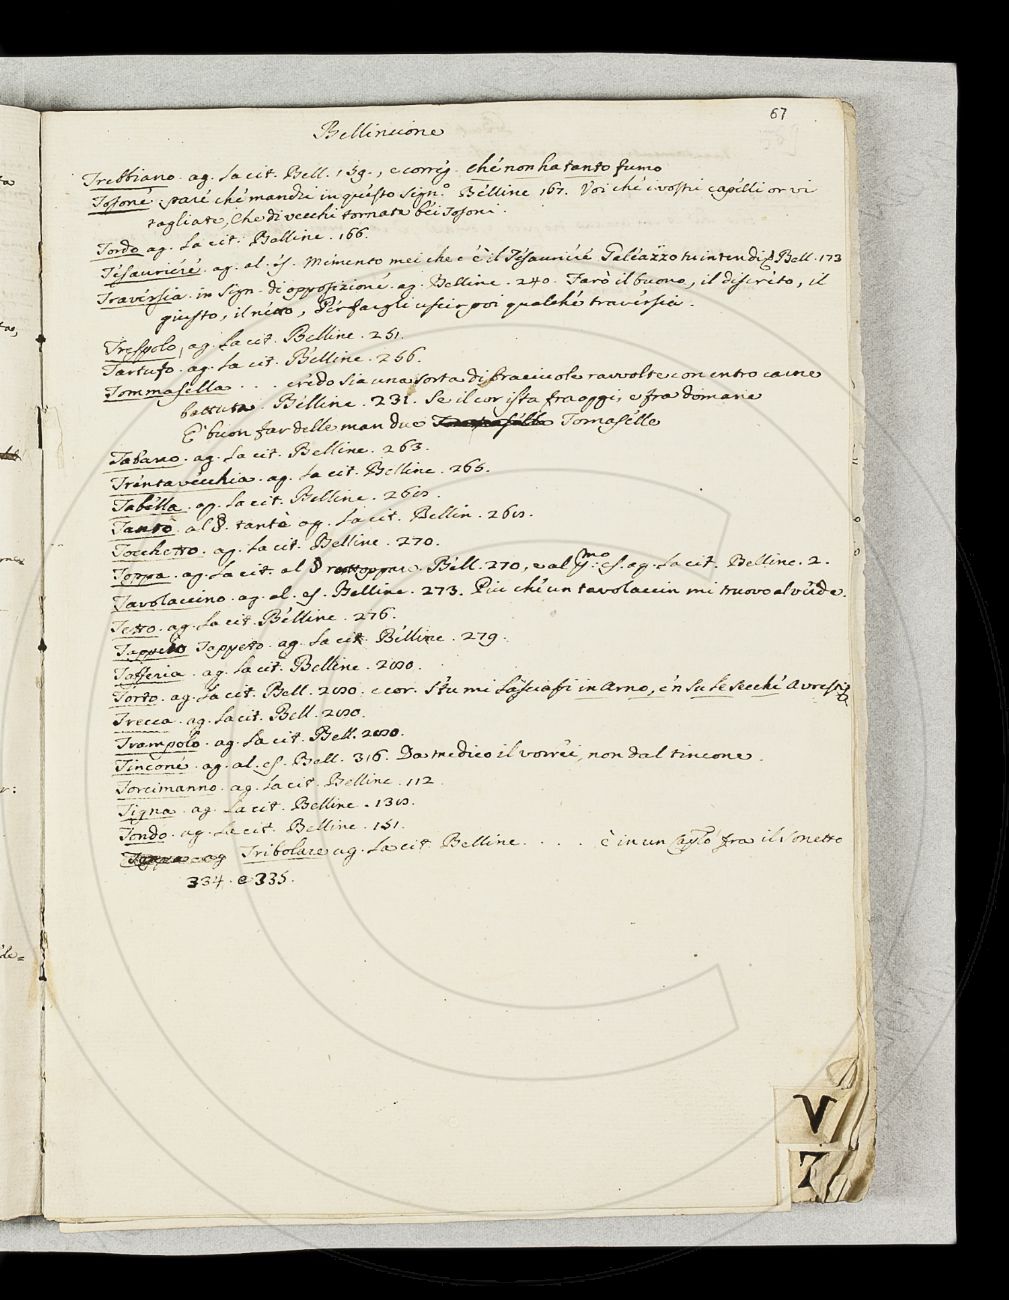 67
Bellincione
Trebbiano. ag. la cit. Bell. 159., e corrég. ché non ha tanto fumo
Tosoné. pare ché mandi in quésto Sign.º Bélline 167. Voi ché i vostri capélli or vi
tagliate, Che di vecchi tornate béi Tosoni.
Tordo ag. la cit. Belline. 166.
Tésauriéré. ag. al. és. Miménto mei che c'é il Tésauriéré Galeazzo tu intendi Bell. 173
Travérsia. in Sign. di opposizioné. ag. Belline. 240. Farò il buono, il discréto, il
giusto, il nétto, Pér fargli uscir poi qualché travérsia.
Tréspolo, ag. la cit. Bélline. 251.
Tartufo. ag. la cit. Bélline. 256.
Tommasélla . . . crédo sia una sorta di ravvolte con entro carne
battuta. Bélline. 231. Se il cor ista fra oggi, e fra domane
E' buon far delle man due Tomasélle
Tabano. ag. la cit. Belline. 263.
Tréntavécchia. ag. la cit. Belline. 265.
Tabélla. ag. la cit. Belline. 268.
Tanto. al §. tanto ag. la cit. Bellin. 268.
Tocchetto. ag. la cit. Belline. 270.
Toppa. ag. la cit. al § Béll. 270, e al és. ag. la cit. Belline. 2.
Tavolaccino. ag. al. és. Belline. 273. Piu ché un tavolaccin mi truovo al vérde.
Tetto. ag. la cit. Bélline. 276.
Tappeto Tappeto. ag. la cit. Bélline. 279.
Tafferia. ag. la cit. Belline. 280.
Torto. ag. la cit. Bell. 280. e cor. S'tu mi lasciassi in Arno, é'n su le secché
Trecca. ag. la cit. Bell. 280.
Trampolo. ag. la cit. Bell. 280.
Tinconé. ag. al. és. Bell. 316. Da medico il vorréi, non dal tincone.
Torcimanno. ag. la cit. Belline. 112.
Tigna. ag. la cit. Belline. 138.
Tondo. ag. la cit. Belline. 151.
Tribolare ag. la cit Belline. . . . . è in un fra il Sonetto
334. e 335.
V
Z